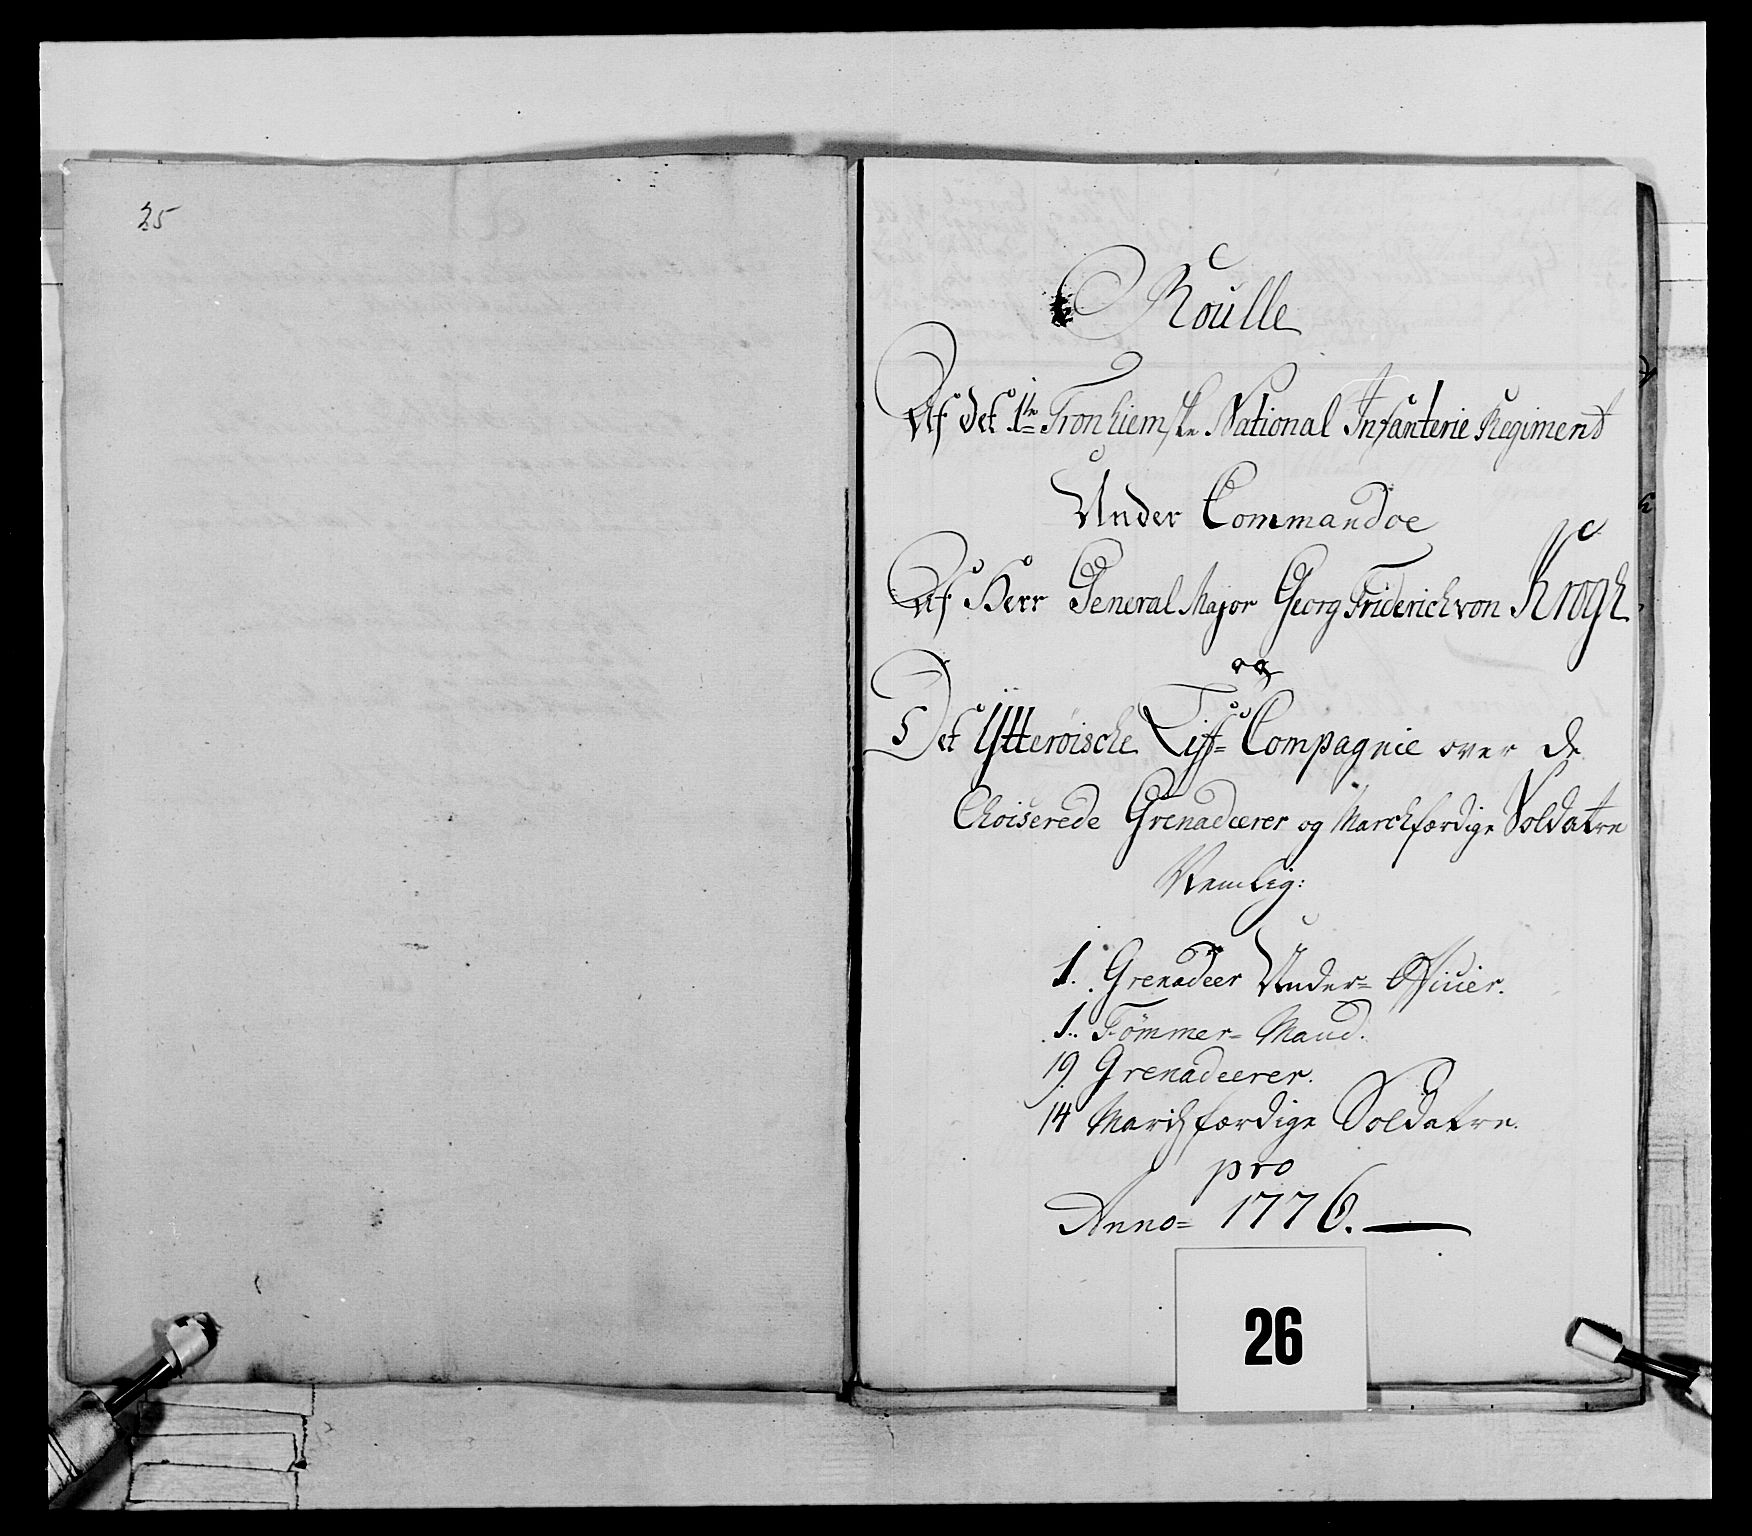 25
Roulle
Af det 1te Tronhiemske National Infanterie Regiment
Under Commandoe
Af Herr General Major Georg Friderich von Krogh
og
Det Ytterøische Liff= Compagnie over de
Choiserede Grenadeerer og Marchfærdige Soldatre
Nemlig:
1. Grenadeer Under= Officier.
1. Tömmer= Mand.
19 Grenadeerer.
14 Marchfærdige Soldatre.
pro
Anno= 1776.
26